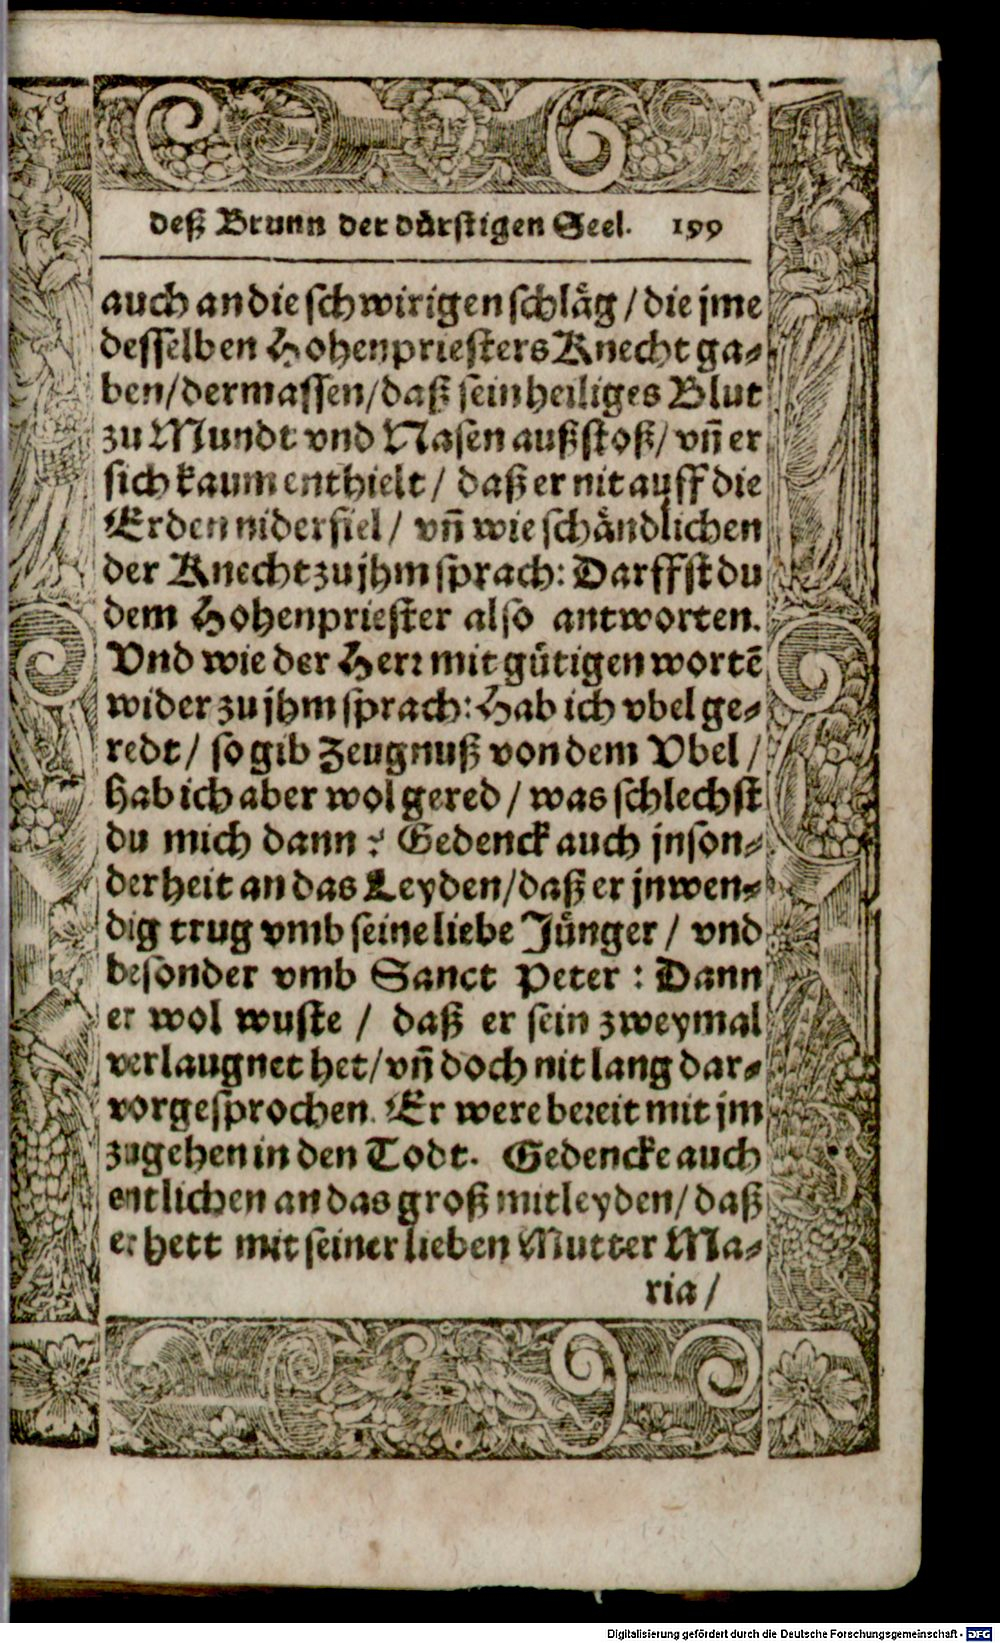 deß Brunn der dürstigen Seel. 199
auch an die schwirigen schläg / die jme
desselben Hohenpriesters Knecht ga-
ben/dermassen/daß sein heiliges Blut
zu Mundt vnd Nasen außstoß/ vñ er
sich kaum enthielt / daß er nit auff die
Erden niderfiel / vñ wie schändlichen
der Knecht zu jhm sprach: Darffst du
dem Hohenpriester also antworten.
Vnd wie der Herr mit gütigen wortẽ
wider zu jhm sprach: Hab ich vbel ge-
redt / so gib Zeugnuß von dem Vbel /
hab ich aber wol gered / was schlechst
du mich dann ? Gedenck auch jnson-
derheit an das Leyden/daß er jnwen-
dig trug vmb seine liebe Jünger / vnd
besonder vmb Sanct Peter : Dann
er wol wuste / daß er sein zweymal
verlaugnet het/vñ doch nit lang dar-
vor gesprochen. Er were bereit mit jm
zugehen in den Todt. Gedencke auch
entlichen an das groß mitleyden/ daß
er hett mit seiner lieben Mutter Ma-
ria /
Digitalisierung gefördert durch die Deutsche Forschungsgemeinschaft - DFG